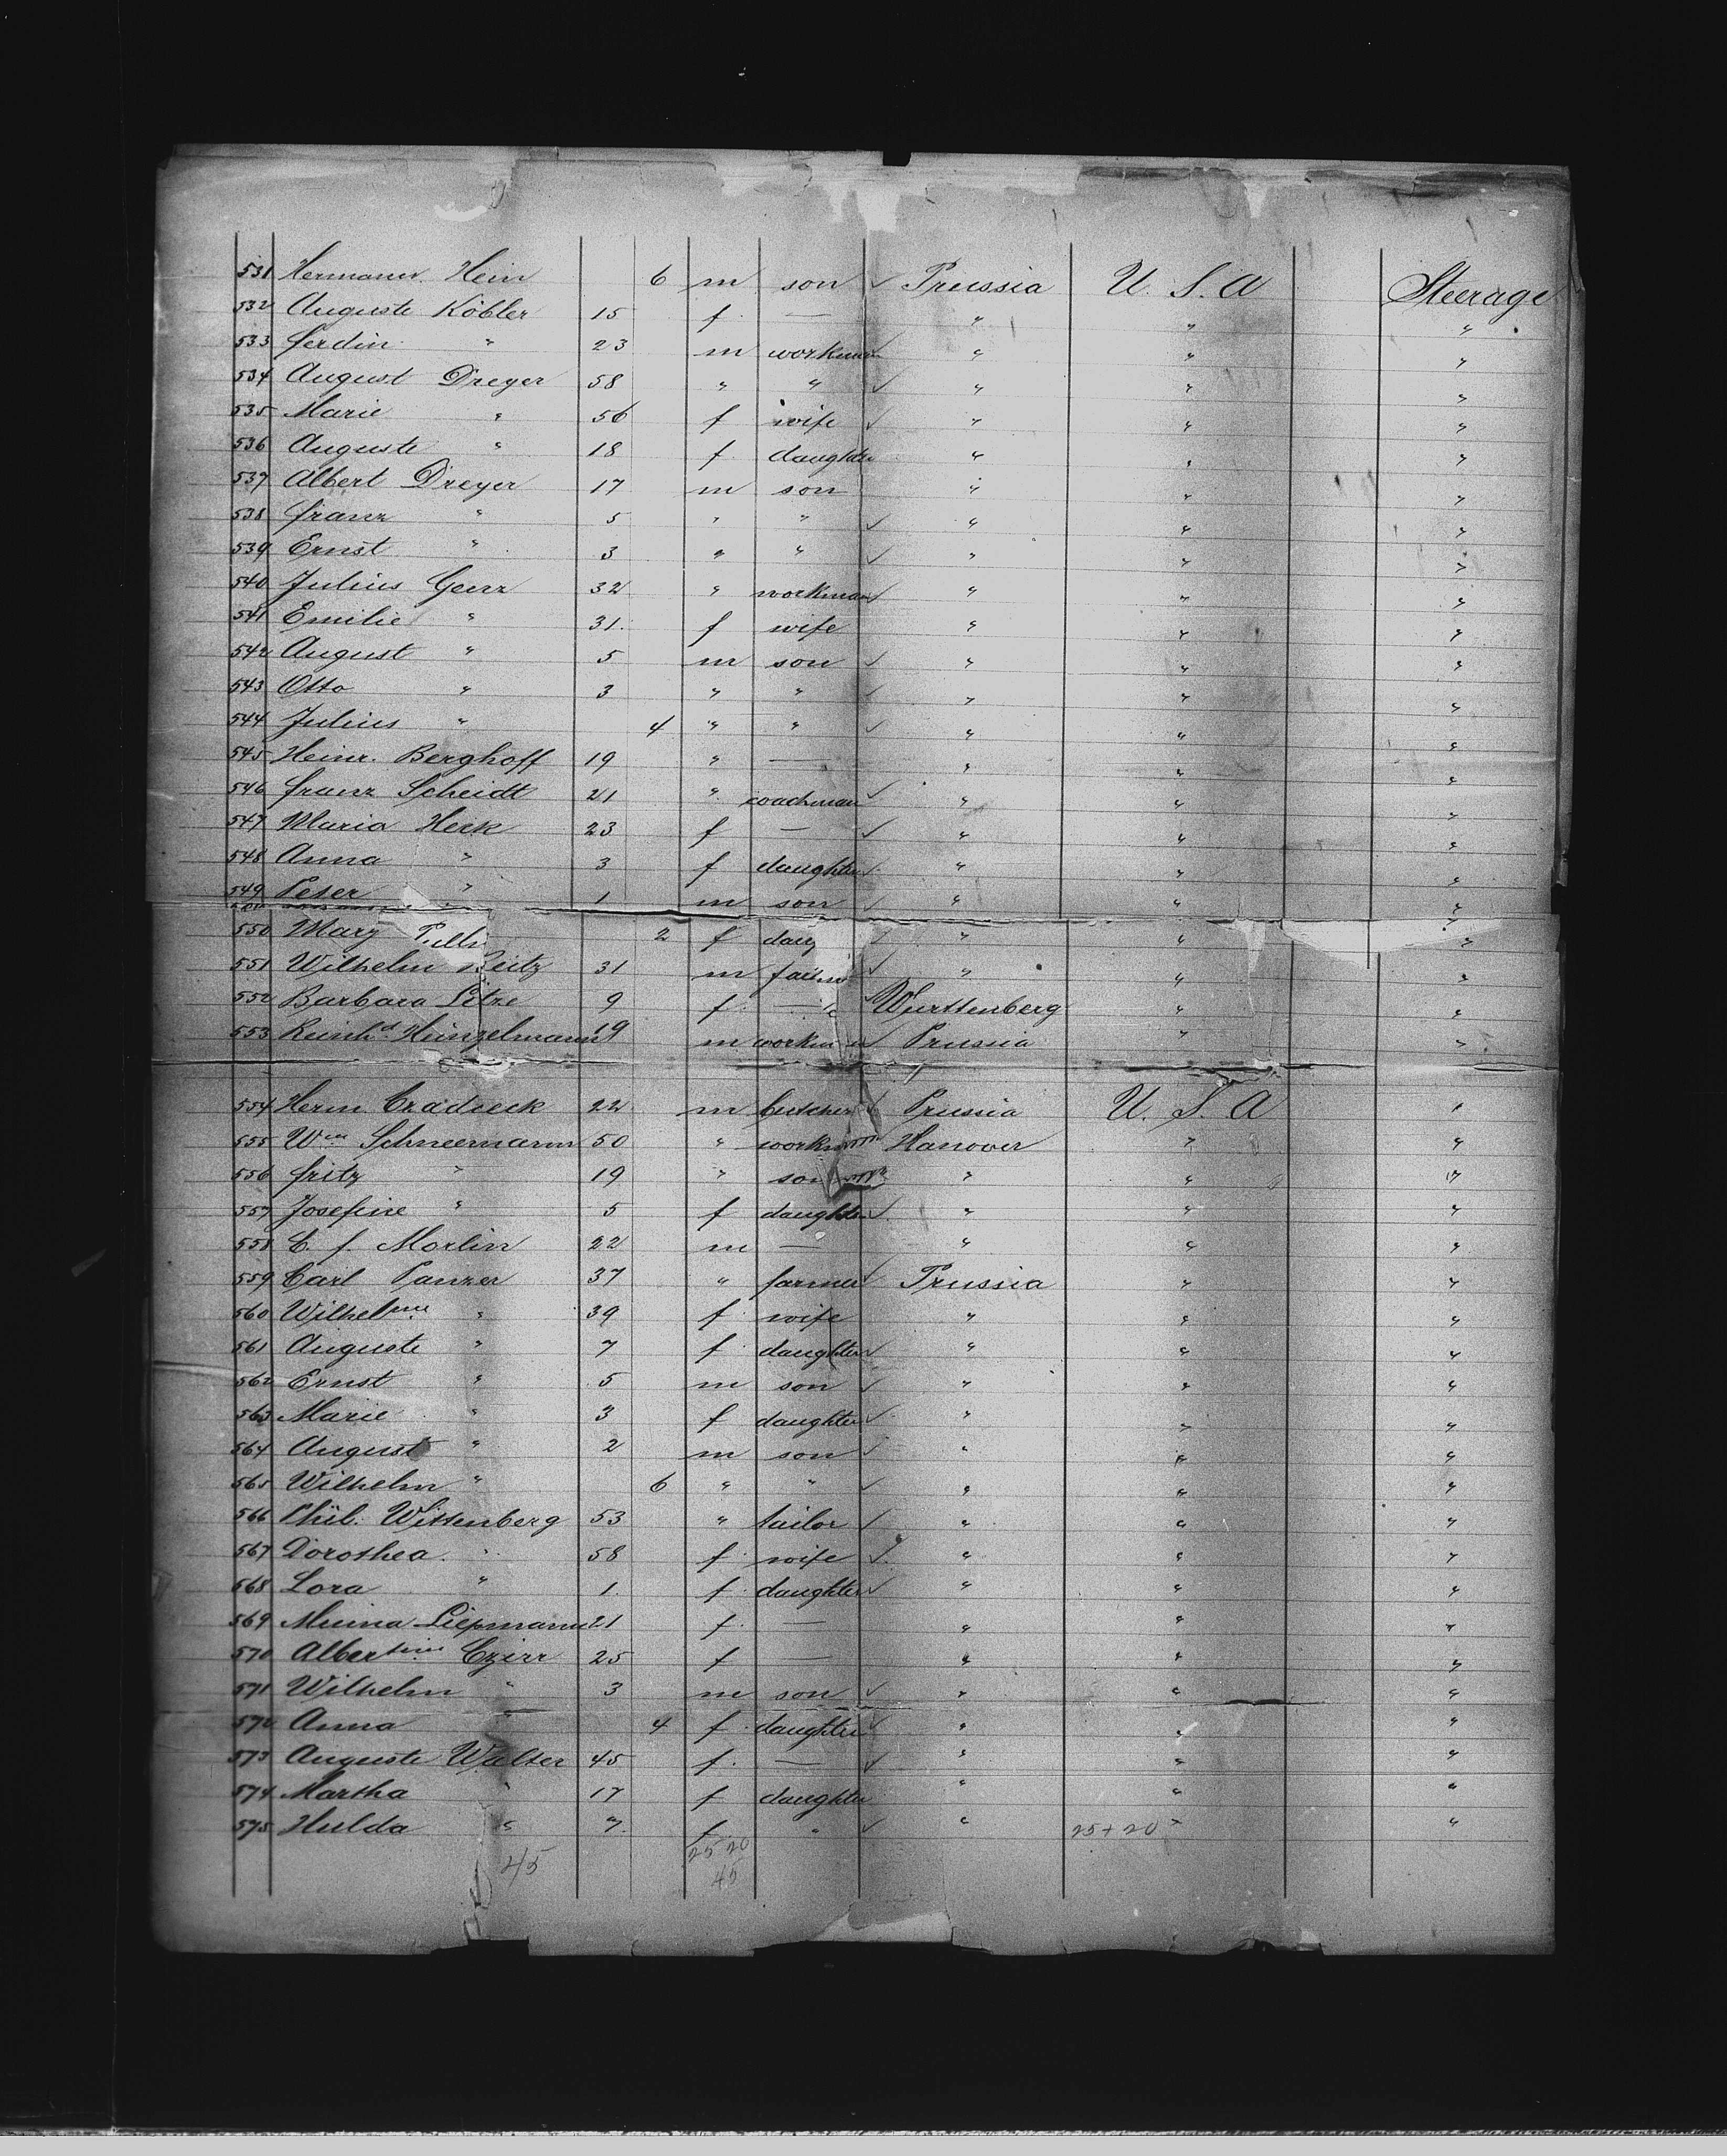 531 Hermann Hein 6 m son ✓ Prussia U. S. A Steerage
532 Auguste Köbler 15 f — " " "
533 Ferdin. " 23 m workman ✓ " " "
534 August Dreyer 58 " " ✓ " " "
535 Marie " 56 f wife ✓ " " "
536 Auguste " 18 f daughter " " "
537 Albert Dreyer 17 m son " " "
538 Franz " 5 " " ✓ " " "
539 Ernst " 3 " " ✓ " " "
540 Julius Genz 32 " workman ✓ " " "
541 Emilie " 31 f wife " " "
542 August " 5 m son ✓ " " "
543 Otto " 3 " " ✓ " " "
544 Julius " 4 " " ✓ " " "
545 Heinr. Berghoff 19 " — " " "
546 Franz Scheidt 21 " coachman ✓ " " "
547 Maria Herk 23 f — ✓ " " "
548 Anna " 3 f daughter ✓ " " "
549 Peter " 1 m son ✓ " " "
550 Mary 2 f daug ✓ " " "
551 Wilhelm Beitz 31 m farm ✓ " " "
552 Barbara Litze 9 f — Wurttenberg " "
553 Reinhd Heinzelmann 19 m workm n ✓ Prussia " "
554 Herm. Cradieck 22 m butcher ✓ Prussia U. S. A "
555 Wm Schneemann 50 " workman Hanover " "
556 Fritz " 19 " son " " "
557 Josefine " 5 f daughter ✓ " " "
558 C. F. Morlin 22 m — " " "
559 Carl Panzer 37 " farmer ✓ Prussia " "
560 Wilhelme " 39 f wife " " "
561 Auguste " 7 f daughter ✓ " " "
562 Ernst " 5 m son ✓ " " "
563 Marie " 3 f daughter ✓ " " "
564 August " 2 m son ✓ " " "
565 Wilhelm " 6 " " ✓ " " "
566 Phil. Wittenberg 53 " tailor ✓ " " "
567 Dorothea " 58 f wife ✓ " " "
568 Lora " 1 f daughter ✓ " " "
569 Minna Liepmann 21 f — " " "
570 Albertine Czirr 25 f — " " "
571 Wilhelm " 3 m son ✓ " " "
572 Anna " 4 f daughter ✓ " " "
573 Auguste Walter 45 f — ✓ " " "
574 Martha " 17 f daughter " " "
575 Hulda " 7 f " ✓ " 25+20 " "
45 25 20
45